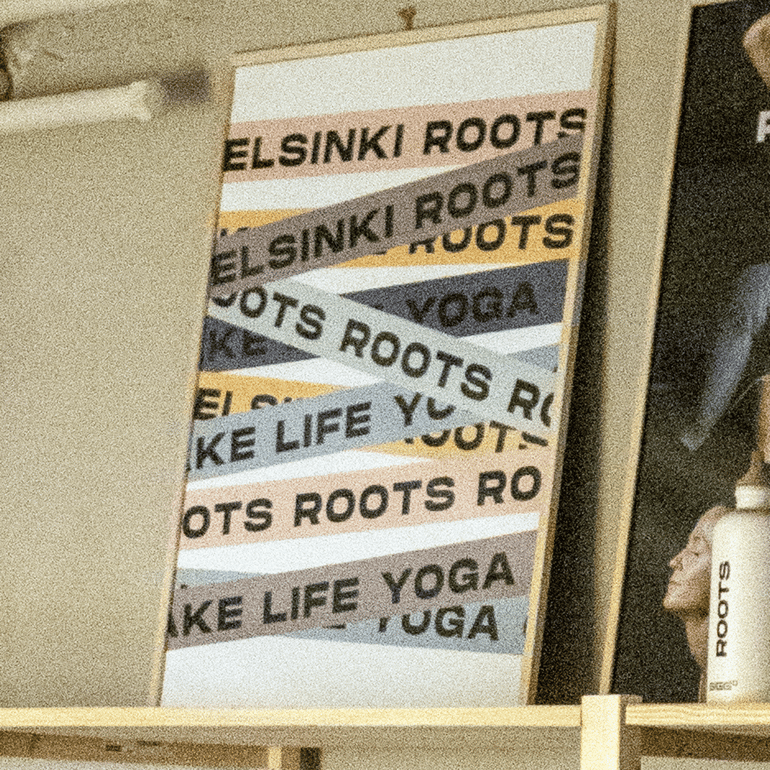 ELSINKI ROOTS
ELSINKI ROOTS
ROOTS
YOGA
OOTS ROOTS RO
KE
ELS
AKE LIFE YO
OOTS
OTS ROOTS RO
AKE LIFE YOGA
YOGA
ROOTS